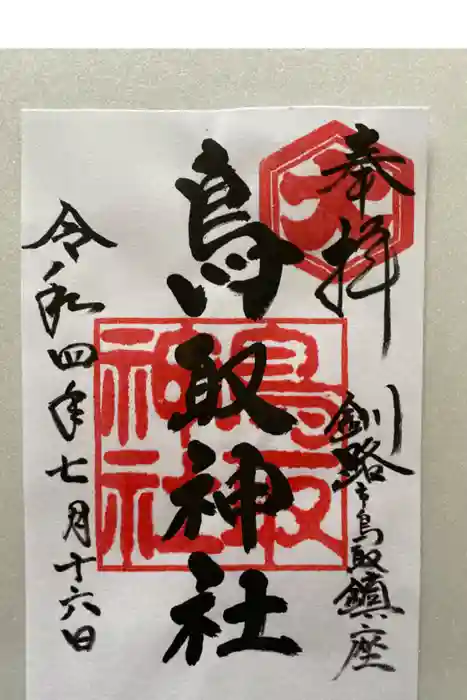 奉拝
釧路市鳥取鎮座
鳥取神社
鳥取
神社
令和四年七月十六日